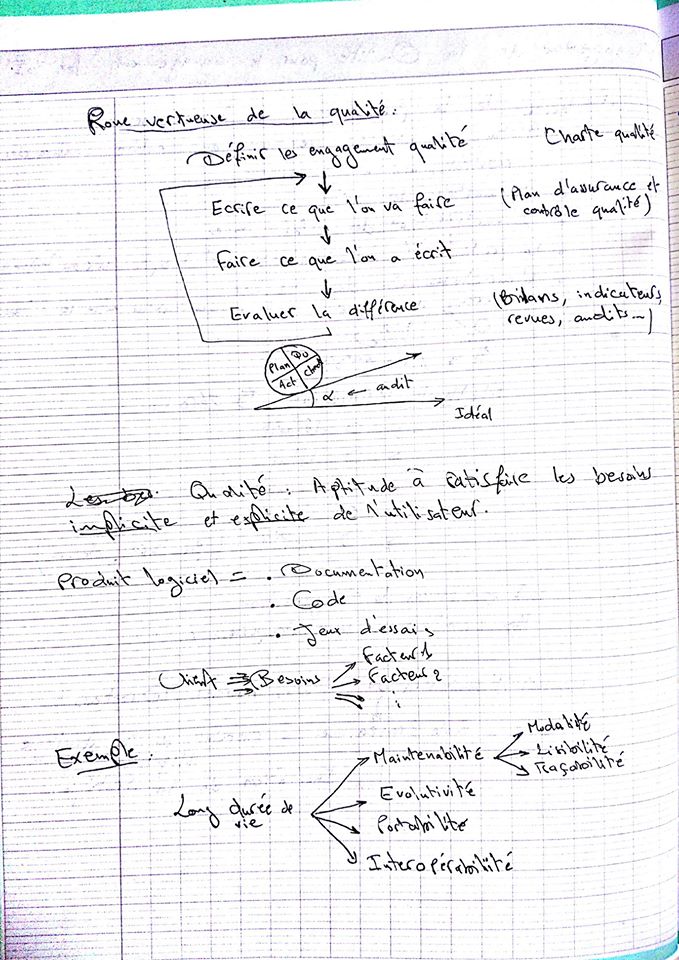 Roue vertueuse de la qualité :
Définir les engagement qualité Charte qualité
Ecrire ce que l'on va faire (Plan d'assurance et
contrôle qualité)
Faire ce que l'on a écrit
Evaluer la différence (Bilans, indicateurs,
revues, audits...)
Plan Do
Act Check
α ← audit
Idéal
Qualité : Aptitude à satisfaire les besoins
implicite et explicite de l'utilisateur.
Produit logiciel = . Documentation
. Code
. Jeux d'essais
Facteur 1
Client Besoins Facteur 2
Exemple :
Modalité
Maintenabilité Lisibilité
Traçabilité
Evolutivité
Long durée de
vie
Portabilité
Interopérabilité